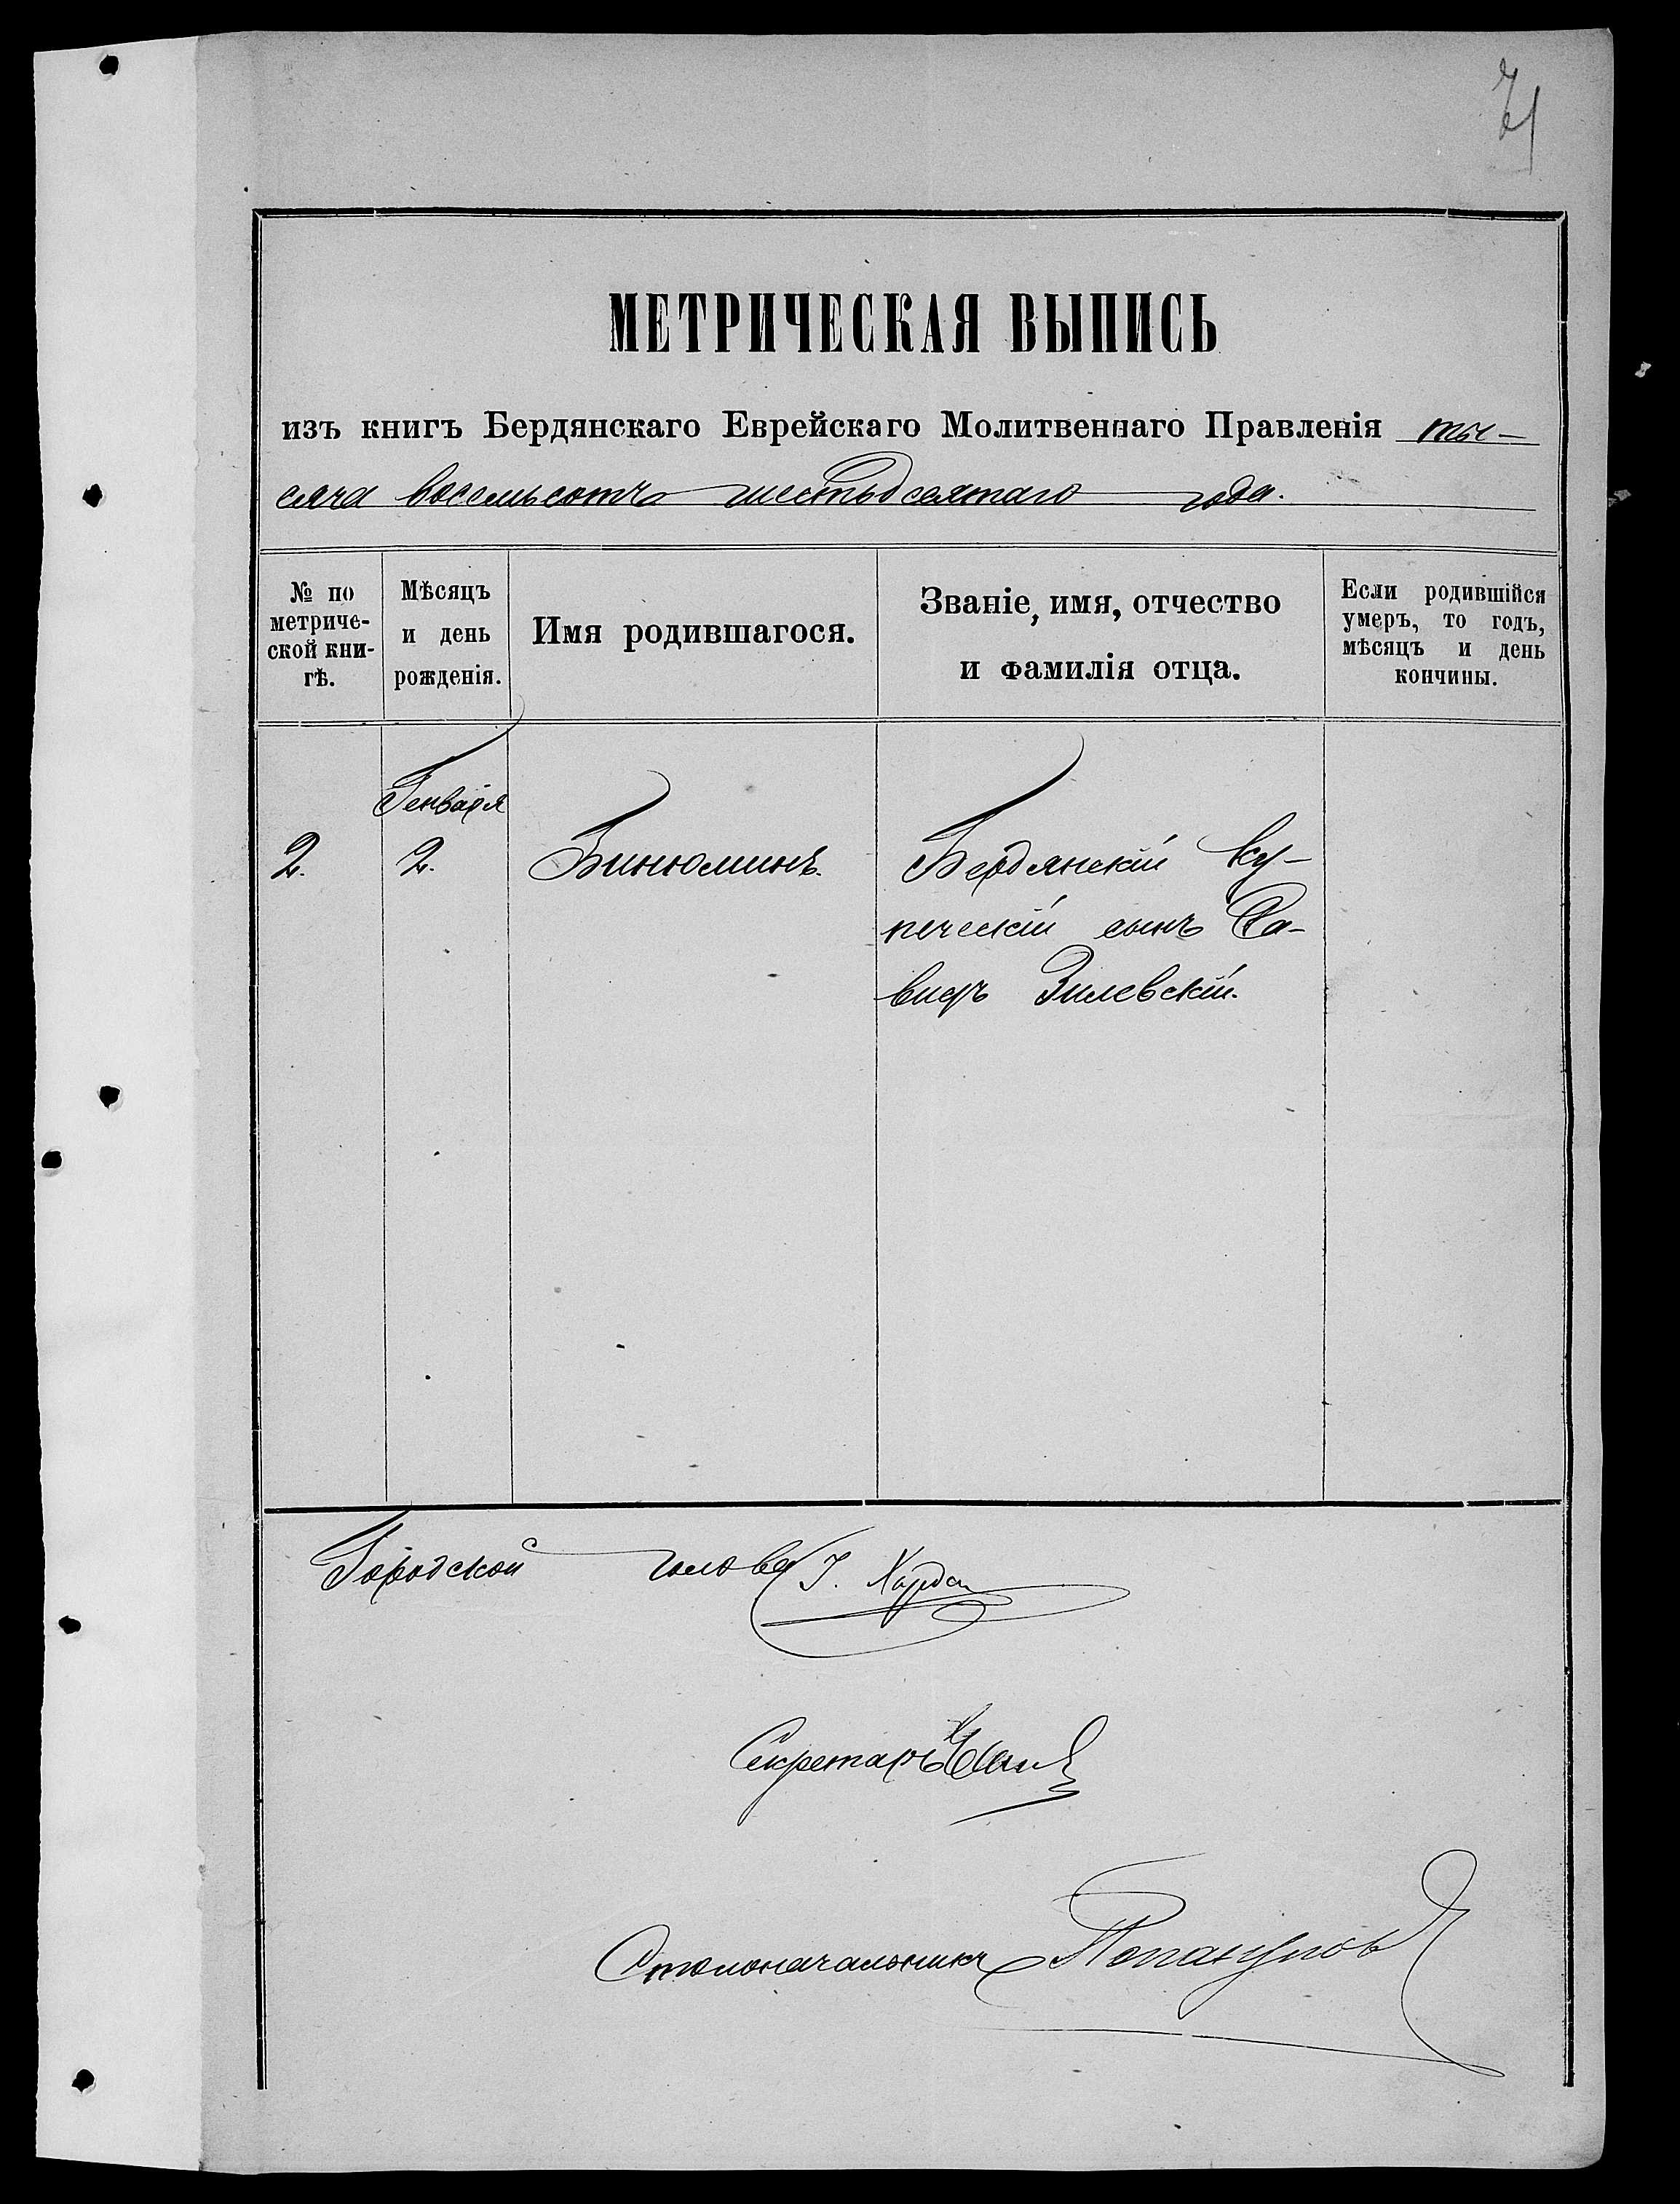 71
МЕТРИЧЕСКАЯ ВЫПИСЬ
изъ книгъ Бердянскаго Еврейскаго Молитвеннаго Правленія ты-
сяча восемьсотъ шестьдсятаго года.
№ по
метриче-
ской кни-
гѣ.
Мѣсяцъ
и день
рожденія.
Имя родившагося.
Званіе, имя, отчество
и фамилія отца.
Если родившійся
умеръ, то годъ,
мѣсяцъ и день
кончины.
2.
Генваря
2.
Бинюминъ.
Бердянскій ку-
печескій сынъ Да-
видъ Зилевскій.
Городской голова
Секретарь
Столоначальникъ